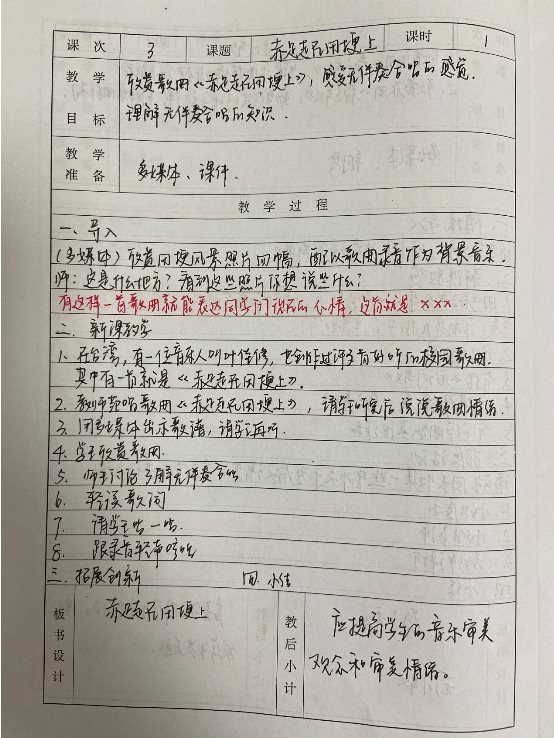 课 次 3 课题 赤足走在田埂上 课时 1
教 学 欣赏歌曲《赤足走在田埂上》，感受无伴奏合唱的感觉.
目 标 理解无伴奏合唱的知识.
教 学
准 备 多媒体、课件.
教 学 过 程
一、导入
(多媒体) 欣赏田埂风景照片四幅，配以歌曲录音作为背景音乐
师：这是什么地方？看到这些照片你想说些什么？
有这样一首歌曲就能表达同学们现在的心情，这首就是 ×××
二、新课教学
1、在台湾，有一位音乐人叫叶佳修，也创作过许多首好听的校园歌曲.
其中有一首就是《赤足走在田埂上》.
2、教师范唱歌曲《赤足走在田埂上》，请学生听完后说说歌曲情绪.
3、用多媒体出示歌谱，请学生再听.
4、学生欣赏歌曲.
5、师生讨论了解无伴奏合唱
6、轻读歌词
7、请学生唱一唱.
8、跟录音轻声哼唱
三、拓展创新 四、小结
板书设计 赤足走在田埂上
教后小计 应提高学生的音乐审美
观念和审美情绪。